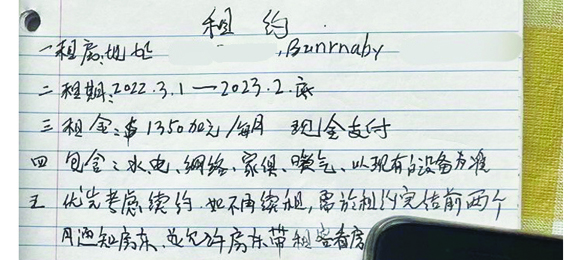 租 约
一 租房地址 , Bunrnaby
二 租期: 2022.3.1 — 2023.2.底
三 租金: $1350加元/每月 现金支付
四 包含: 水电、网络、家俱、暖气、以现有的设备为准
五 优先考虑续约. 如不再续租, 需於租约完结前两个
月通知房东, 并允许房东带租客看房